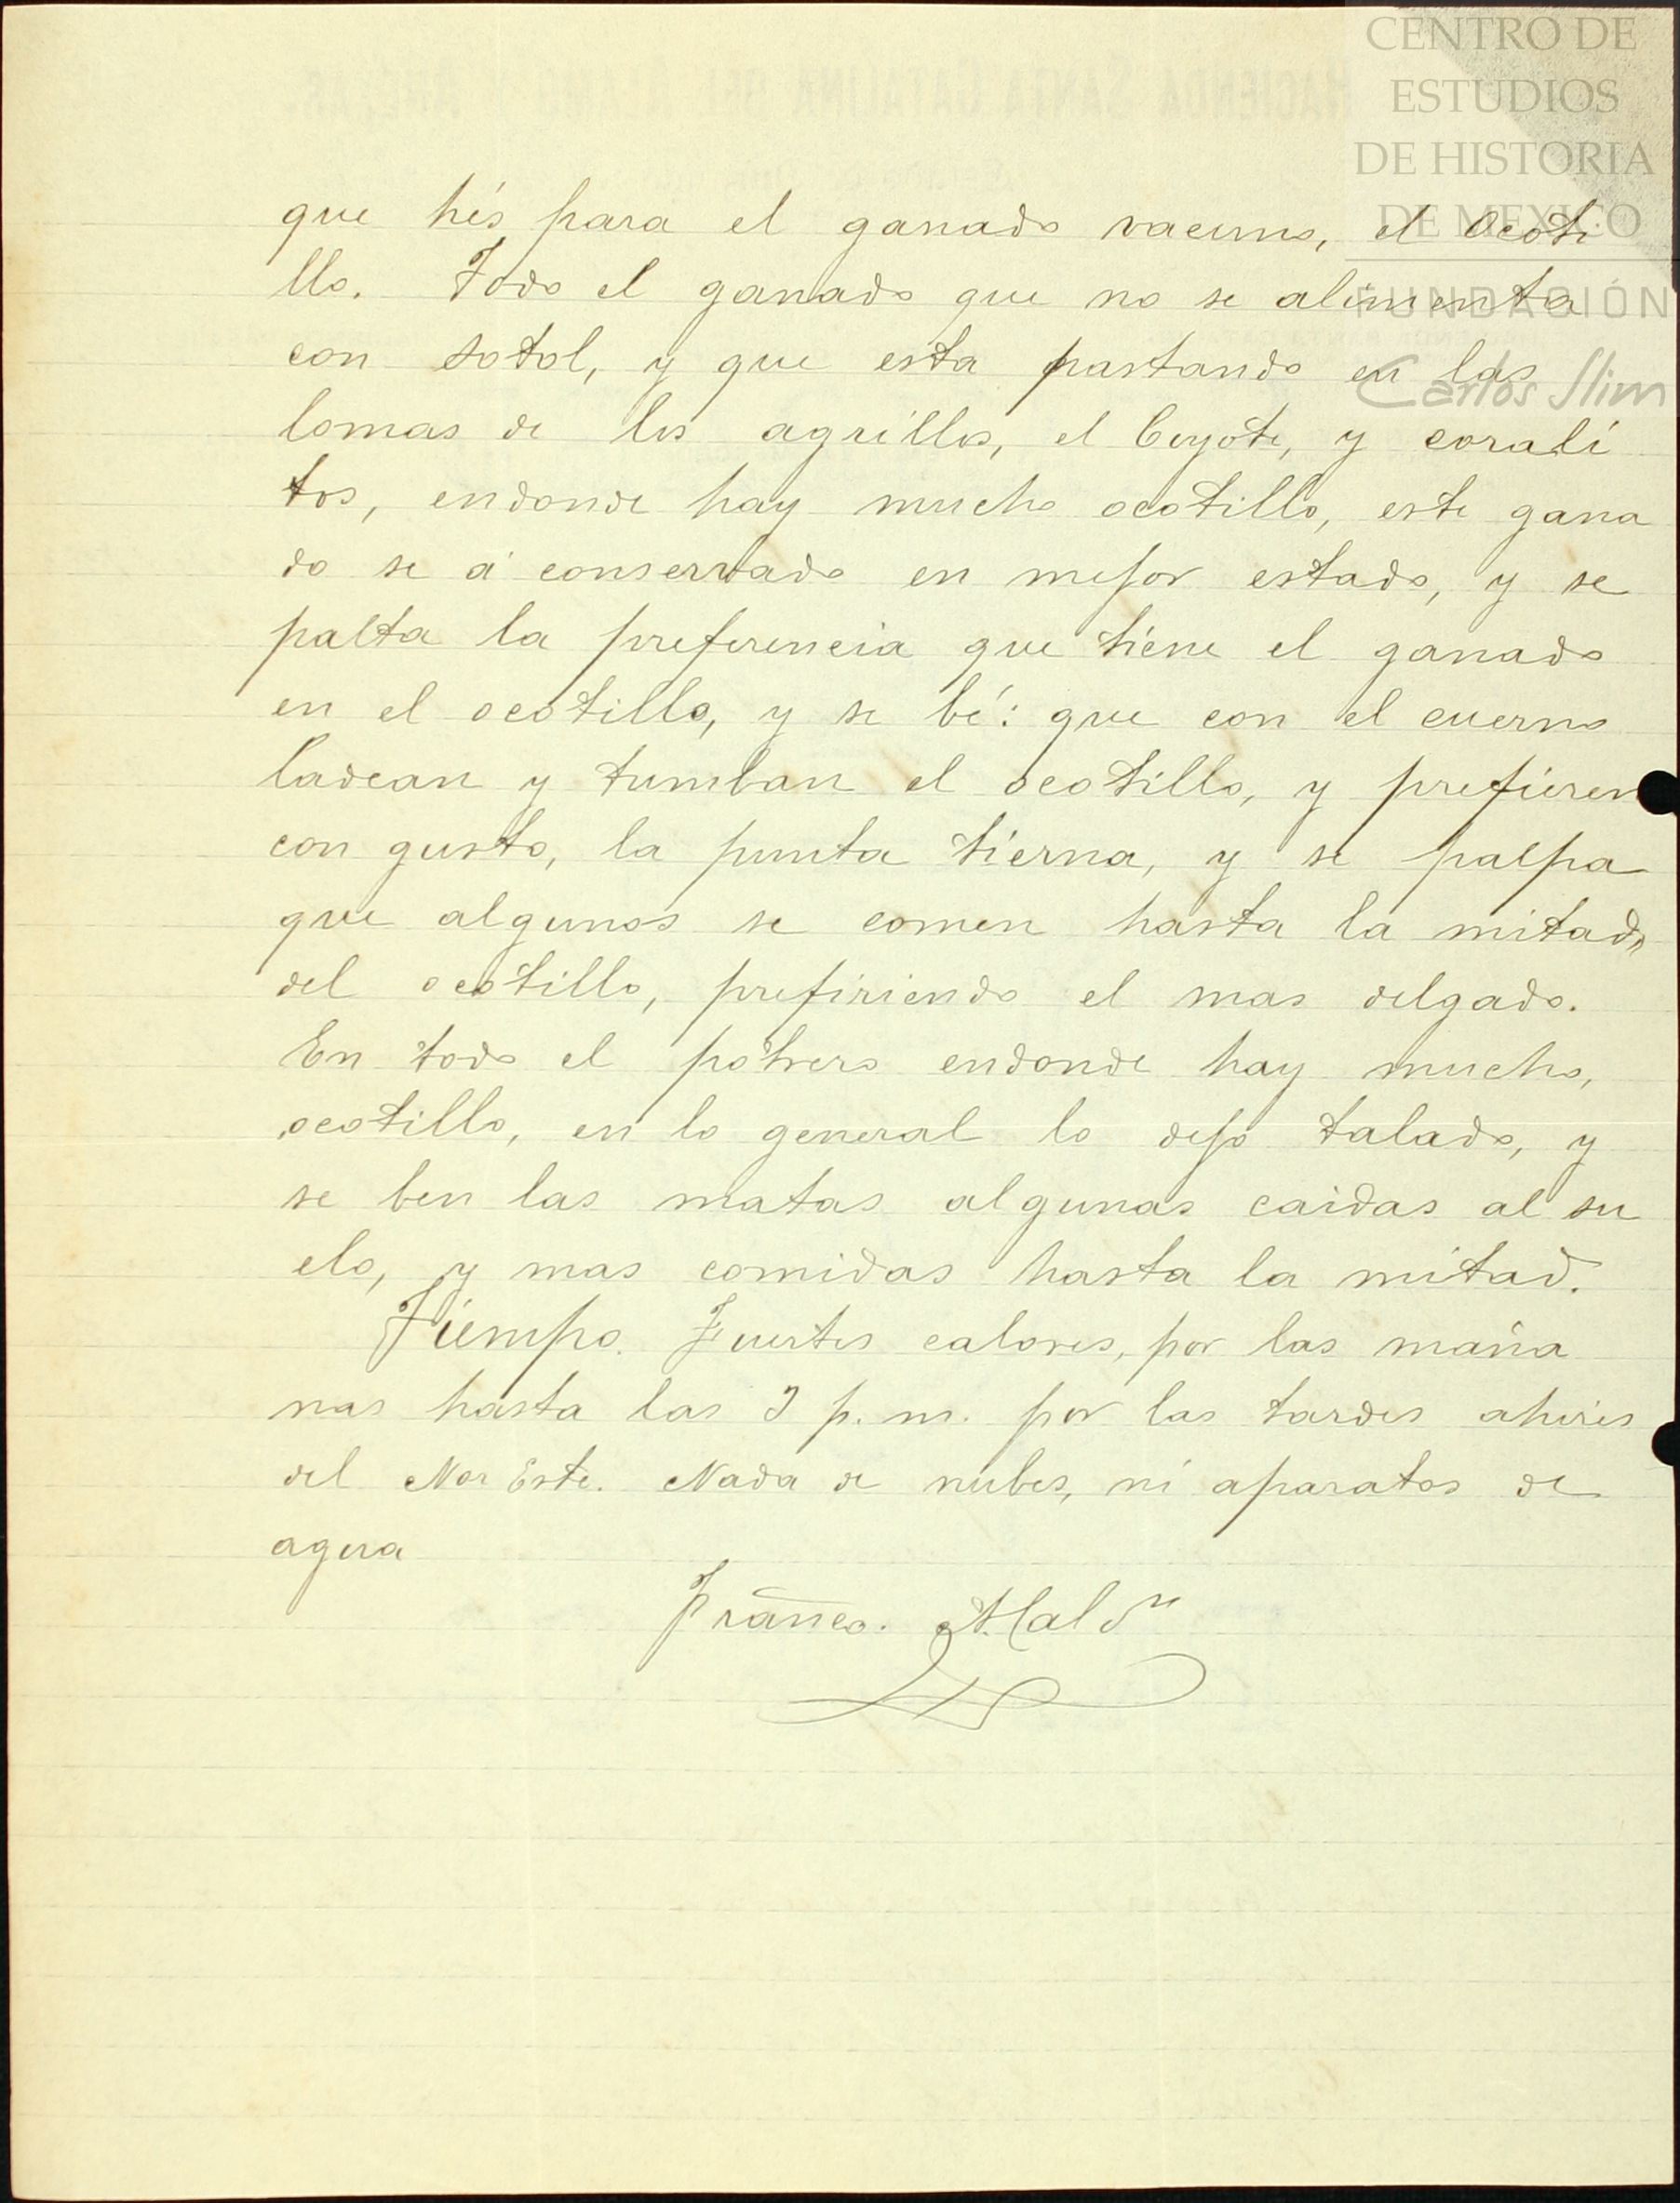 CENTRO DE
ESTUDIOS
DE HISTORIA
DE MEXICO
FUNDACIÓN
Carlos Slim
HACIENDA SANTA CATALINA DEL ALAMO
que hés para el ganado vacuno, el Ocoti
llo. Todo el ganado que no se alimenta
con sotol, y que esta pastando en las
lomas de los agrillos, el Coyote, y corali
tos, endonde hay mucho ocotillo, este gana
do se á conservado en mejor estado, y se
palta la preferencia que tiene el ganado
en el ocotillo, y se bé: que con el cuerno
ladean y tumban el ocotillo, y prefieren
con gusto, la punta tierna, y se palpa
que algunos se comen hasta la mitad,
del ocotillo, prefiriendo el mas delgado.
En todo el potrero endonde hay mucho,
ocotillo, en lo general lo dejo talado, y
se ben las matas algunas caidas al su
elo, y mas comidas hasta la mitad.
Tiempo. Fuertes calores, por las maña
nas hasta las 3 p.m. por las tardes ahires
del Nor Este. Nada de nubes, ni aparatos de
agua
Franco. Maldn